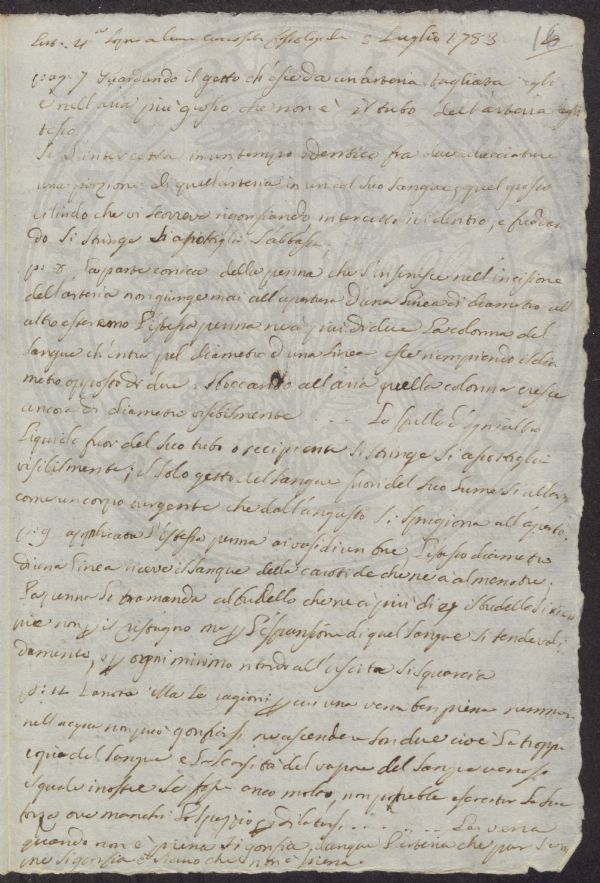 Lett. 4.ta sopra alcune curiosità fisiologiche 5 Luglio 1783 16
pag. 7 Guardando il getto ch'esce da un'arteria tagliata egli
è nell'aria più grosso che non è il tubo dell'arteria
stesso
Si intercetta in un tempo identico fra due allacciature
una porzione di quell'arteria in un col suo sangue, quel grosso
cilindro che vi scorreva rigonfiando intercetto ivi dentro, e
do si stringe si apottiglia s'abbassa
p. 8. La parte conica della penna che s'inserisce nell'incisione
dell'arteria non giunge mai all'apertura d'una linea di diametro all'
altro estremo l'istessa penna ne à più di due La colonna del
sangue ch'entra pel diametro d'una linea esce riempiendo il dia
metro opposto di due. Sboccando all'aria quella colonna cresce
ancora di diametro visibilmente .... Lo spillo d'ogni altro
liquido fuor del suo tubo o recipiente si stringe si apottiglia
visibilmente; il solo getto del sangue fuori del suo lume si allarga
come un corpo turgente che dall'angusto si sprigiona all'aperto.
p. 9 applicata l'istessa penna ai vasi di un bue l'istesso diametro
di una linea riceve il sangue della carotide che ne à almeno tre;
La penna lo tramanda al budello che ne à più di il budello si riem
pie non p il ristagno ma p l'espansione di quel sangue si tende vali
damente, e p ogni minimo ritardo all'uscita si squarcia
p. 12 La nota Le ragioni p cui una vena ben piena
nell'acqua non può gonfiarsi ne ascendere son due cioè La troppa
copia del sangue e La scarsità del vapore del sangue venoso
il quale inoltre se fosse anco molto, non potrebbe esercitar la sua
forza ove manchi lo spazio p dilatarsi ......... La vena
quando non è piena si gonfia, dunque l'arteria che pur
ne si gonfia è segno che non è piena.